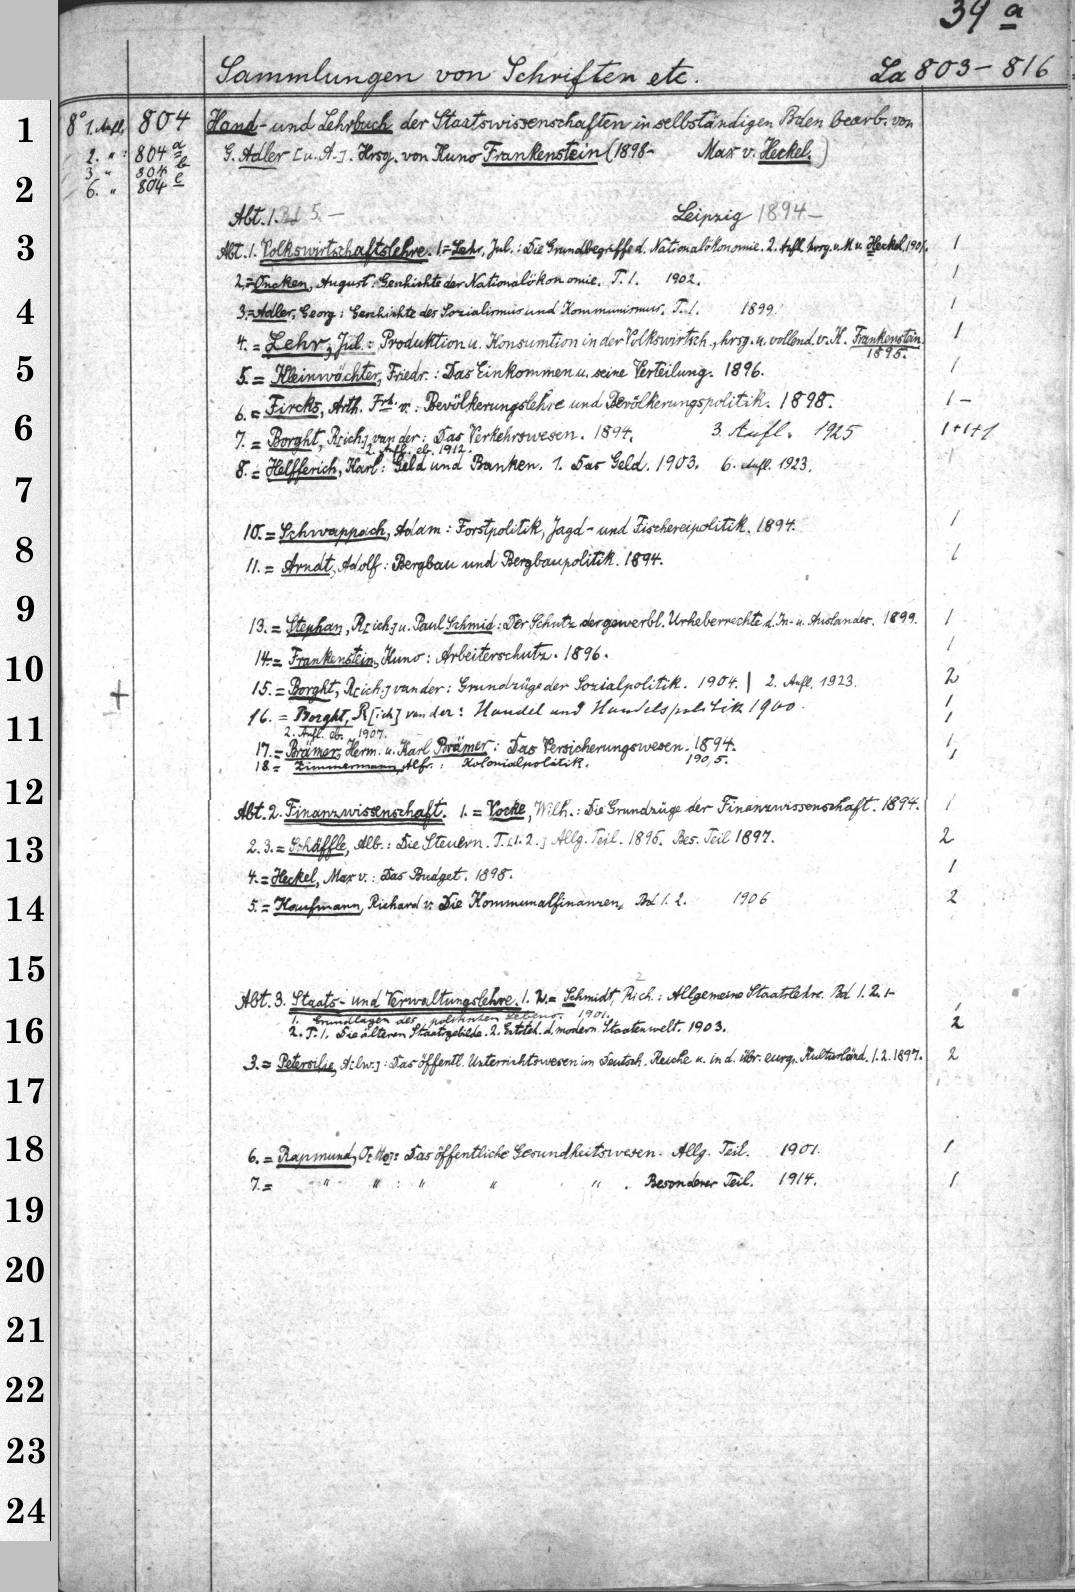 39 a
Sammlungen von Schriften etc. La 803 - 816
8° 1. Aufl. 804 Hand- und Lehrbuch der Staatswissenschaften in selbständigen Bden bearb. von
2. " 804 a G. Adler [u. A.]. Hrsg. von Kuno Frankenstein (1898- Max v. Heckel.)
3. " 804 b
6. " 804 c
Abt. 1. 5 - Leipzig 1894 -
Abt. 1. Volkswirtschaftslehre. 1. = Lehr, Jul.: Die Grundbegriffe d. Nationalökonomie. 2. Aufl. hrsg. v. M. v. Heckel. 1901. 1
2. = Oncken, August: Geschichte der Nationalökonomie. T. 1. 1902. 1
3. = Adler, Georg: Geschichte des Sozialismus und Kommunismus. T. 1. 1899. 1
4. = Lehr, Jul.: Produktion u. Konsumtion in der Volkswirtsch., hrsg. u. vollend. v. K. Frankenstein. 1
1895.
5. = Kleinwächter, Friedr.: Das Einkommen u. seine Verteilung. 1896. 1
6. = Fircks, Arth. Frh. v.: Bevölkerungslehre und Bevölkerungspolitik. 1898. 1 -
7. = Borght, R[ich.] van der: Das Verkehrswesen. 1894. 3. Aufl. 1925 1+1+1
2. Aufl. eb. 1912.
8. = Helfferich, Karl: Geld und Banken. 1. Das Geld. 1903. 6. Aufl. 1923. 1
10. = Schwappach, Adam: Forstpolitik, Jagd- und Fischereipolitik. 1894. 1
11. = Arndt, Adolf: Bergbau und Bergbaupolitik. 1894. 1
13. = Stephan, R[ich.] u. Paul Schmid: Der Schutz der gewerbl. Urheberrechte d. In- u. Auslandes. 1899. 1
14. = Frankenstein, Kuno: Arbeiterschutz. 1896. 1
+ 15. = Borght, R[ich.] van der: Grundzüge der Sozialpolitik. 1904. | 2. Aufl. 1923. 2
16. = Borght, R[ich] van der: Handel und Handelspolitik 1900. 1
2. Aufl. eb. 1907. 1
17. = Brämer, Herm. u. Karl Brämer: Das Versicherungswesen. 1894. 1
18. = Zimmermann, Alfr.: Kolonialpolitik. 1905. 1
Abt. 2. Finanzwissenschaft. 1. = Vocke, Wilh.: Die Grundzüge der Finanzwissenschaft. 1894. 1
2. 3. = Schäffle, Alb.: Die Steuern. T. [1. 2.] Allg. Teil. 1895. Bes. Teil 1897. 2
4. = Heckel, Max v.: Das Budget. 1898. 1
5. = Kaufmann, Richard v. Die Kommunalfinanzen, Bd 1. 2. 1906 2
2
Abt. 3. Staats- und Verwaltungslehre. 1. 2. = Schmidt, Rich.: Allgemeine Staatslehre. Bd 1. 2. 1-
1. Grundlagen des politischen Lebens. 1901. 1
2. T. 1. Die älteren Staatsgebilde. 2. Entsteh. d. modern. Staatenwelt. 1903. 2
3. = Petersilie, A[lw.]: Das öffentl. Unterrichtswesen im Deutsch. Reiche u. in d. übr. europ. Kulturländ. 1. 2. 1897. 2
6. = Rapmund, O[tto]: Das öffentliche Gesundheitswesen. Allg. Teil. 1901. 1
7. = " " : " " " . Besonderer Teil. 1914. 1
1
2
3
4
5
6
7
8
9
10
11
12
13
14
15
16
17
18
19
20
21
22
23
24